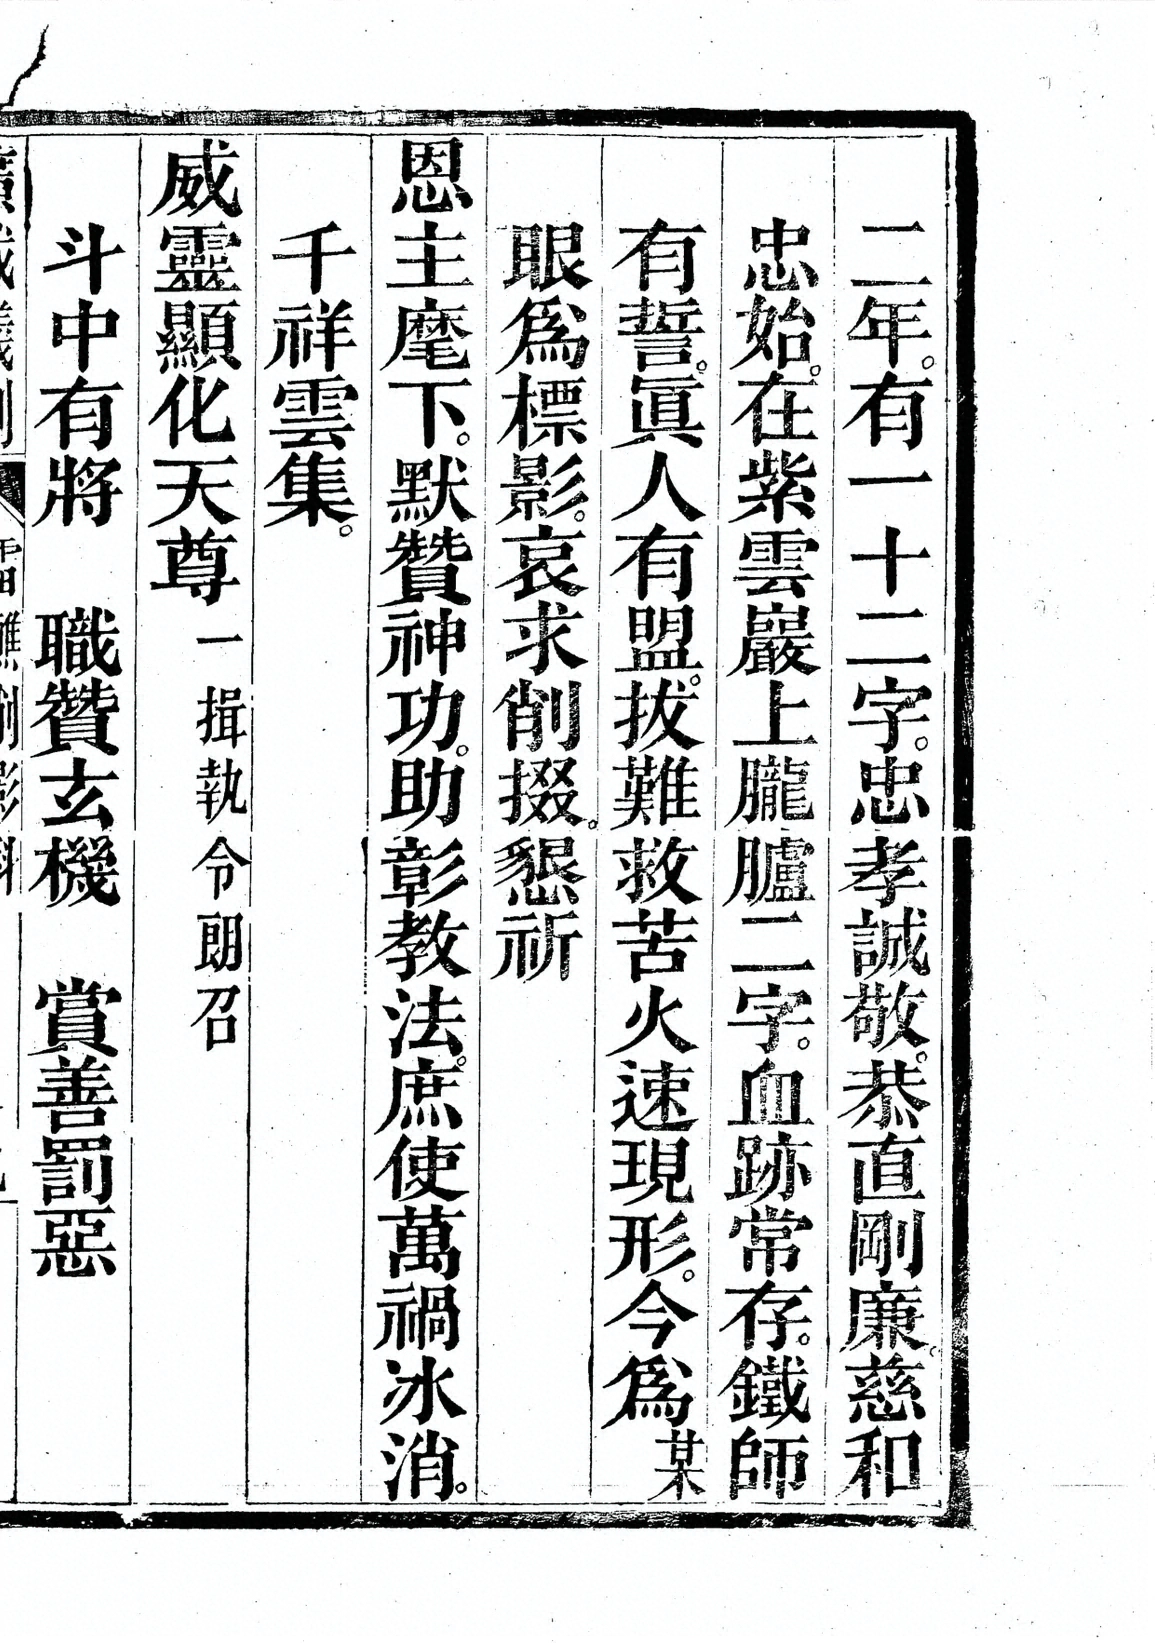 二年。有一十二字。忠孝誠敬。恭直剛廉。慈和
忠始。在紫雲巖上朧臚二字。血跡常存。鐵師
有誓。眞人有盟。拔難救苦火速現形。今爲某
眼爲標影。哀求削掇。懇祈
恩主麾下。默贊神功。助彰教法。庶使萬禍冰消。
千祥雲集。
威靈顯化天尊一揖執令朗召
斗中有將　職贊玄機　賞善罰惡